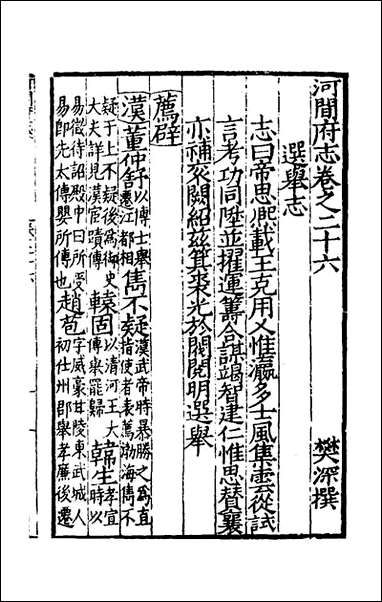 河間府志卷之二十六
樊深撰
選舉志
志曰帝思熙載王克用乂惟藹多士風集雲從試
言考功同陞並擢運籌合謀竭智建仁惟思賛襄
亦補衮闕紹兹箕裘光於閥閱明選舉
薦辟
漢董仲舒以博士舉遷江都相雋不疑漢武帝時暴勝之為直指使者素薦渤海雋不
疑于上不疑後為御史大夫詳見漢官蹟傳轅固以清河王大傅舉罷歸韓生孝宣時以
易徵待詔殿中曰所受易即先太傅嬰所傳也趙苞字威豪甘陵東武城人初仕州郡舉孝廉後遷